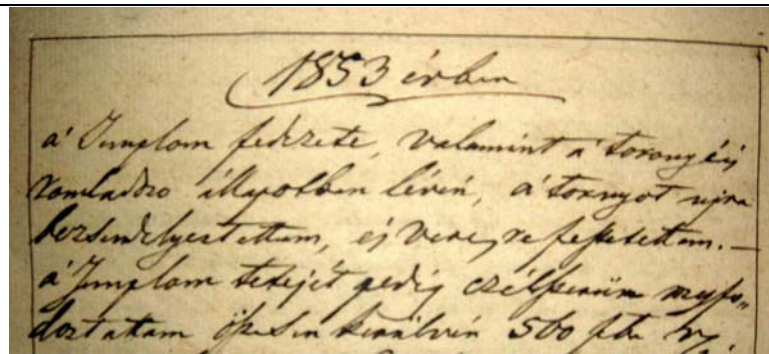 1853 évben
a' Templom fedezete, valamint a' torony éij
romladozo állapotban lévén, a' tornyot ujra
bézsendelyeztettem, éj veresre festettem. —
a' Templom tetejét pedig czélszerün megfo„
doztattam öszesen kerülvén 500 fte